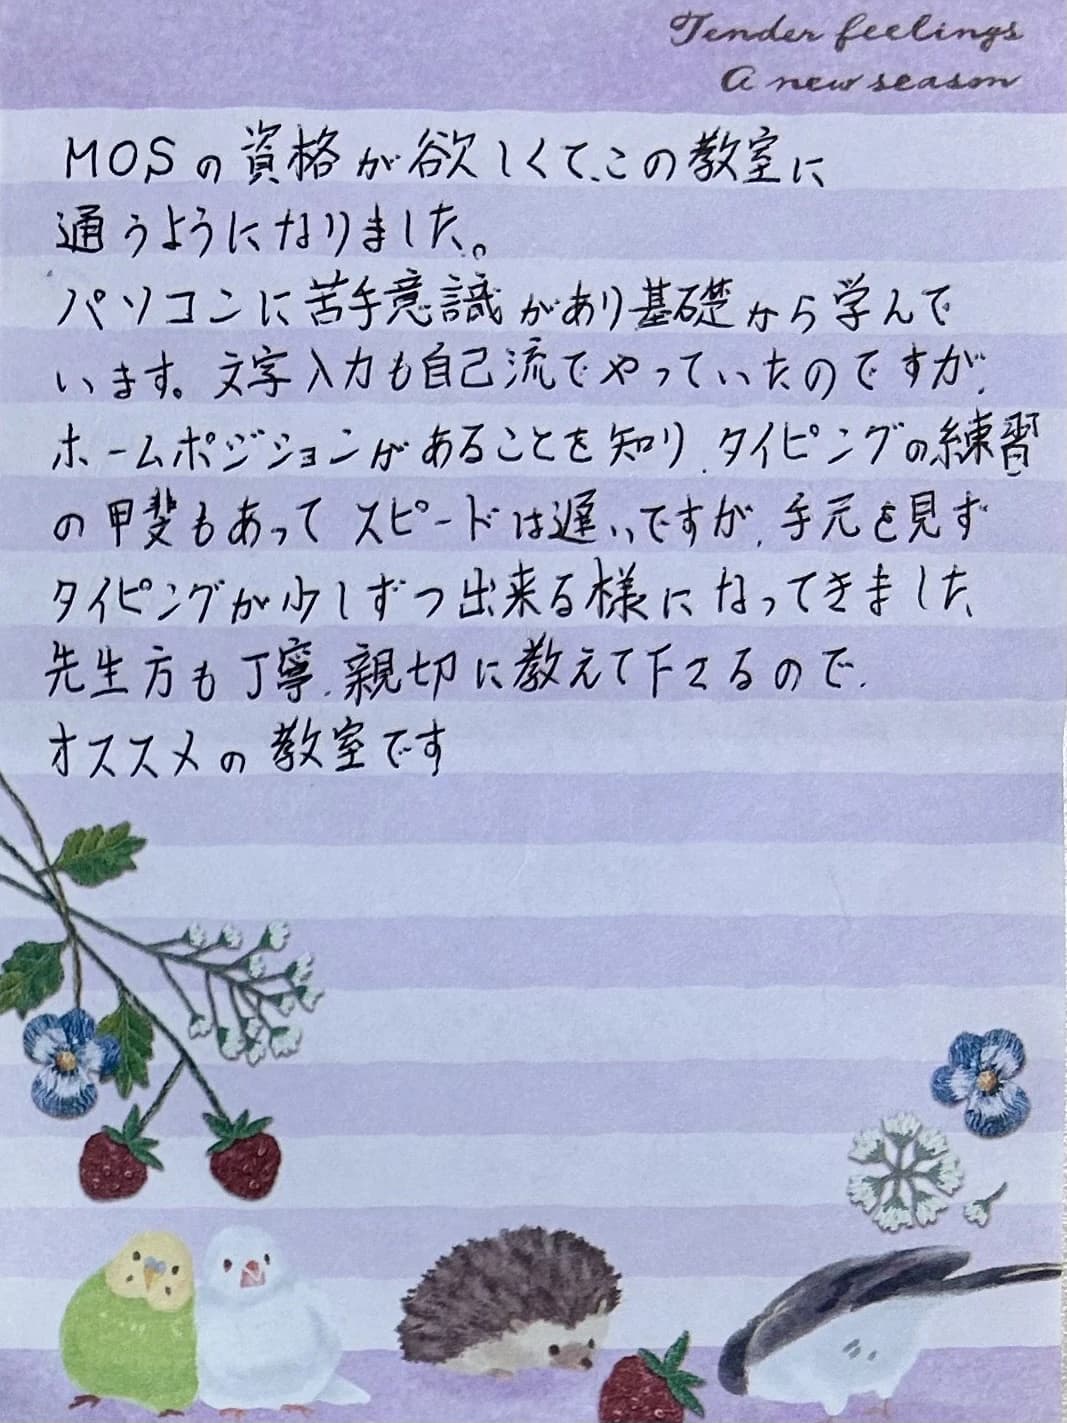 Tender feelings
A new season
MOSの資格が欲しくて、この教室に
通うようになりました。
パソコンに苦手意識があり基礎から学んで
います。文字入力も自己流でやっていたのですが、
ホームポジションがあることを知り、タイピングの練習
の甲斐もあって スピードは遅いですが、手元を見ず
タイピングが少しずつ出来る様になってきました、
先生方も丁寧、親切に教えて下さるので、
オススメの教室です